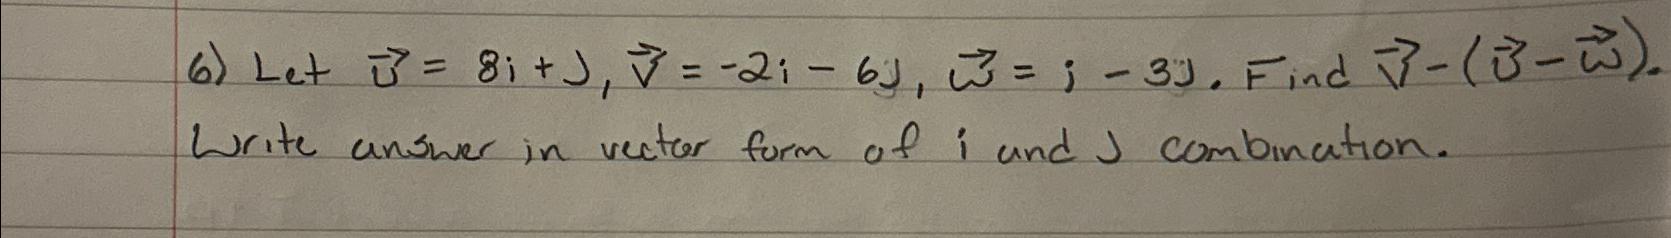 6) Let u⃗ = 8i + J, v⃗ = -2i - 6J, w⃗ = i - 3J. Find v⃗ - (u⃗ - w⃗).
Write answer in vector form of i and J combination.